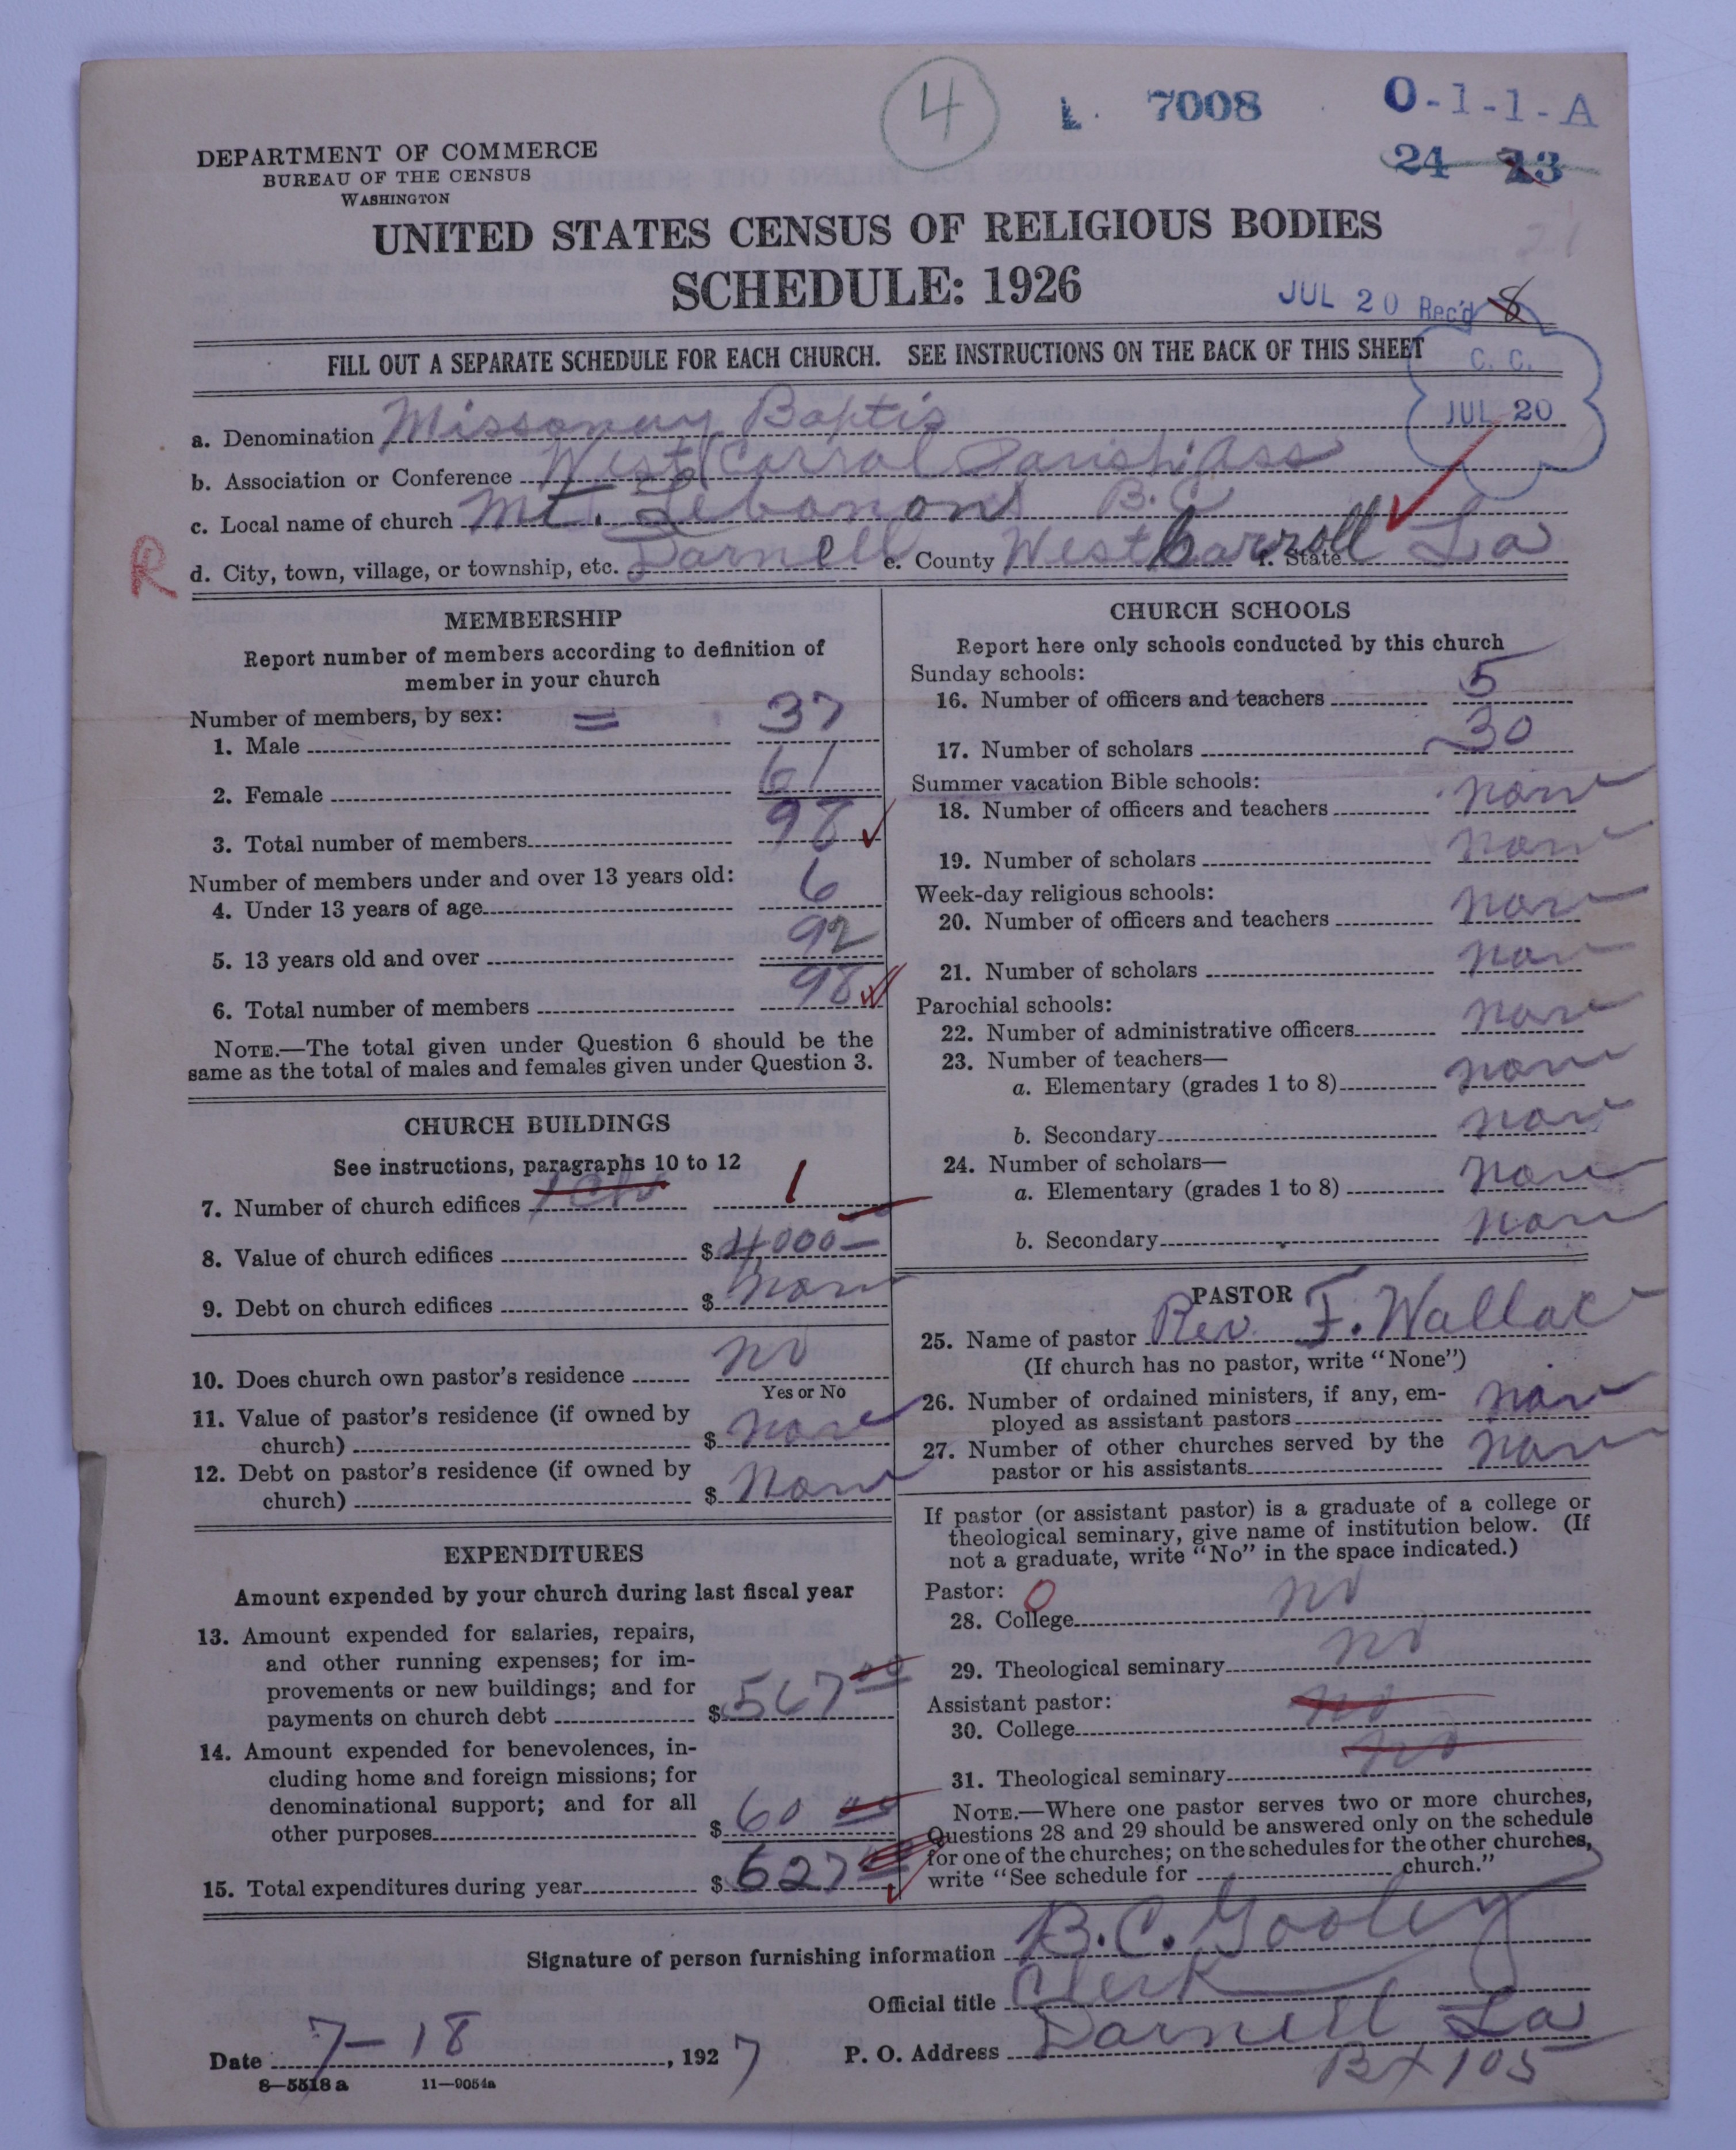 4 L. 7008 0-1-1-A
24 23
DEPARTMENT OF COMMERCE
BUREAU OF THE CENSUS
WASHINGTON
UNITED STATES CENSUS OF RELIGIOUS BODIES
SCHEDULE: 1926
JUL 20 Rec'd 8
FILL OUT A SEPARATE SCHEDULE FOR EACH CHURCH. SEE INSTRUCTIONS ON THE BACK OF THIS SHEET
C. C.
JUL 20
a. Denomination Missonay Baptis
b. Association or Conference West Carrol Parish Ass
c. Local name of church Mt. Lebanon B.C
R
d. City, town, village, or township, etc. Darnell e. County West Carroll f. State La
MEMBERSHIP
Report number of members according to definition of
member in your church
Number of members, by sex:
1. Male 37
2. Female 61
3. Total number of members 98
Number of members under and over 13 years old:
4. Under 13 years of age 6
5. 13 years old and over 92
6. Total number of members 98
NOTE.—The total given under Question 6 should be the
same as the total of males and females given under Question 3.
CHURCH BUILDINGS
See instructions, paragraphs 10 to 12
7. Number of church edifices 1 ch 1
8. Value of church edifices $ 4000
9. Debt on church edifices $ non
10. Does church own pastor's residence no
Yes or No
11. Value of pastor's residence (if owned by
church) $ none
12. Debt on pastor's residence (if owned by
church) $ Non
EXPENDITURES
Amount expended by your church during last fiscal year
13. Amount expended for salaries, repairs,
and other running expenses; for im-
provements or new buildings; and for
payments on church debt $ 567 00
14. Amount expended for benevolences, in-
cluding home and foreign missions; for
denominational support; and for all
other purposes $ 60 00
15. Total expenditures during year $ 627
CHURCH SCHOOLS
Report here only schools conducted by this church
Sunday schools:
16. Number of officers and teachers 5
17. Number of scholars 30
Summer vacation Bible schools:
18. Number of officers and teachers non
19. Number of scholars non
Week-day religious schools:
20. Number of officers and teachers non
21. Number of scholars non
Parochial schools:
22. Number of administrative officers non
23. Number of teachers—
a. Elementary (grades 1 to 8) non
b. Secondary non
24. Number of scholars—
a. Elementary (grades 1 to 8) non
b. Secondary non
PASTOR
25. Name of pastor Rev. F. Wallac
(If church has no pastor, write "None")
26. Number of ordained ministers, if any, em-
ployed as assistant pastors non
27. Number of other churches served by the
pastor or his assistants non
If pastor (or assistant pastor) is a graduate of a college or
theological seminary, give name of institution below. (If
not a graduate, write "No" in the space indicated.)
Pastor: 0
28. College no
29. Theological seminary no
Assistant pastor:
30. College no
31. Theological seminary no
NOTE.—Where one pastor serves two or more churches,
Questions 28 and 29 should be answered only on the schedule
for one of the churches; on the schedules for the other churches,
write "See schedule for church."
Signature of person furnishing information B.C. Gooley
Official title Clerk
Date 7-18, 1927 P. O. Address Darnell La
Bx 105
8—5518 a 11—9054a